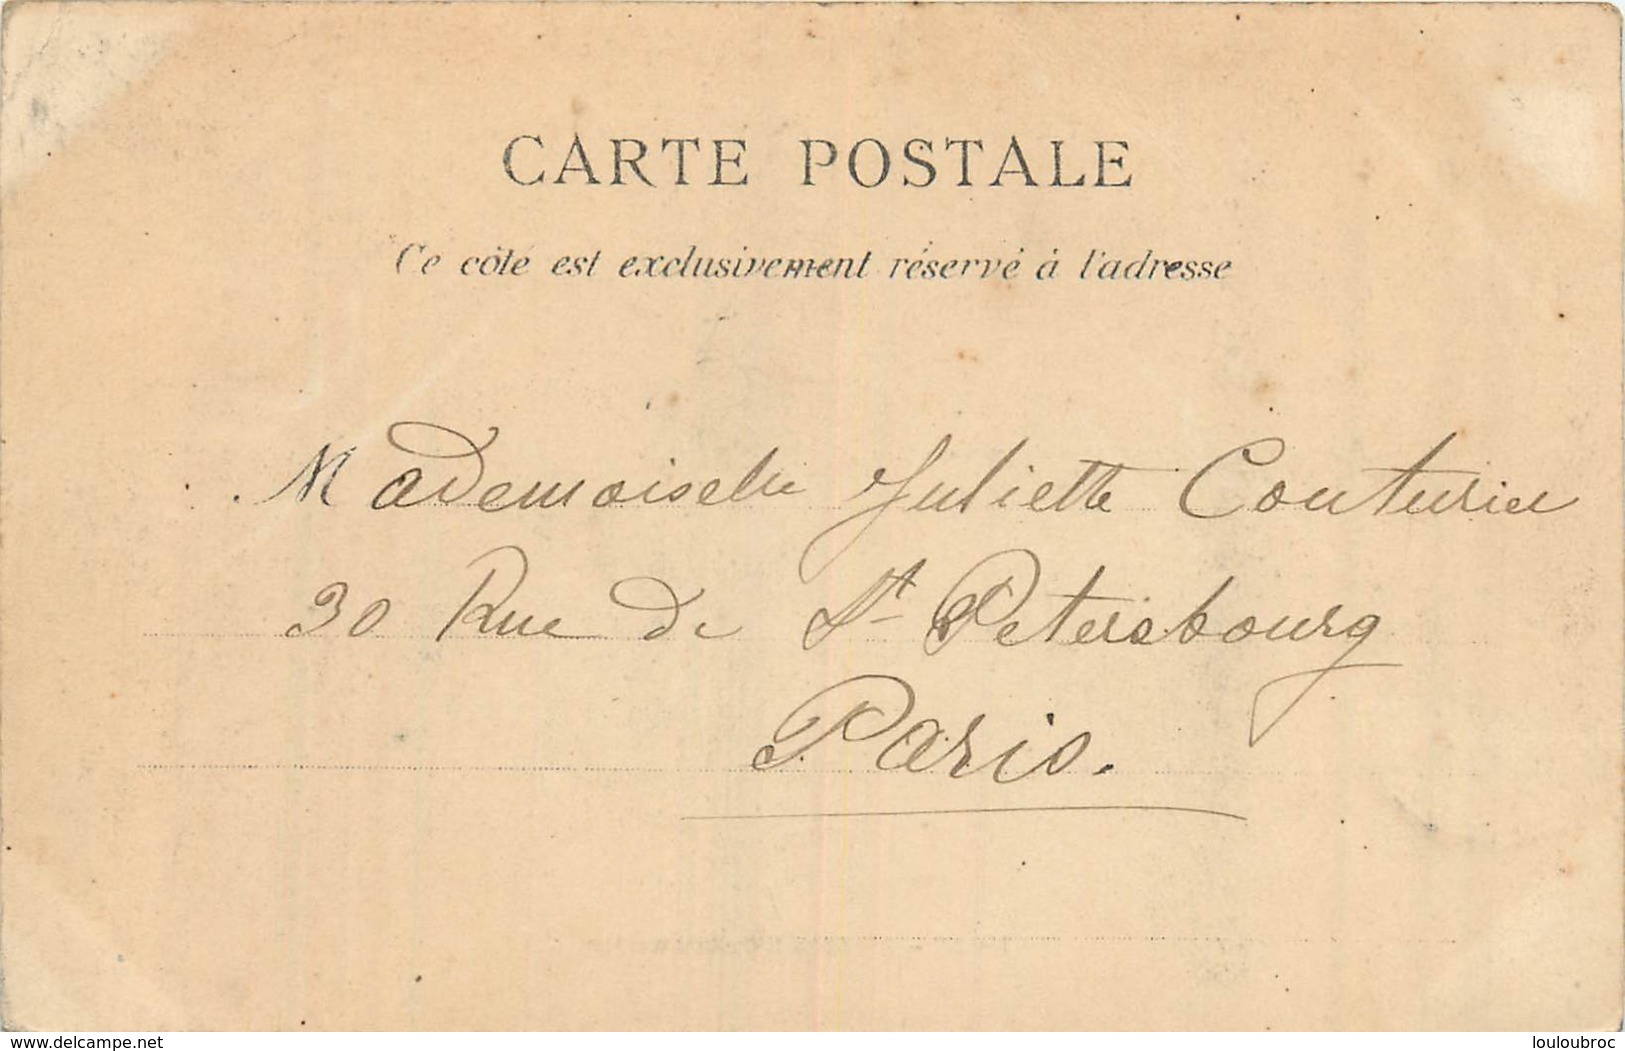 CARTE POSTALE
Ce côté est exclusivement réservé à l'adresse
Mademoiselle Juliette Couturier
30 Rue de St Petersbourg
Paris.
www.delcampe.net
louloubroc